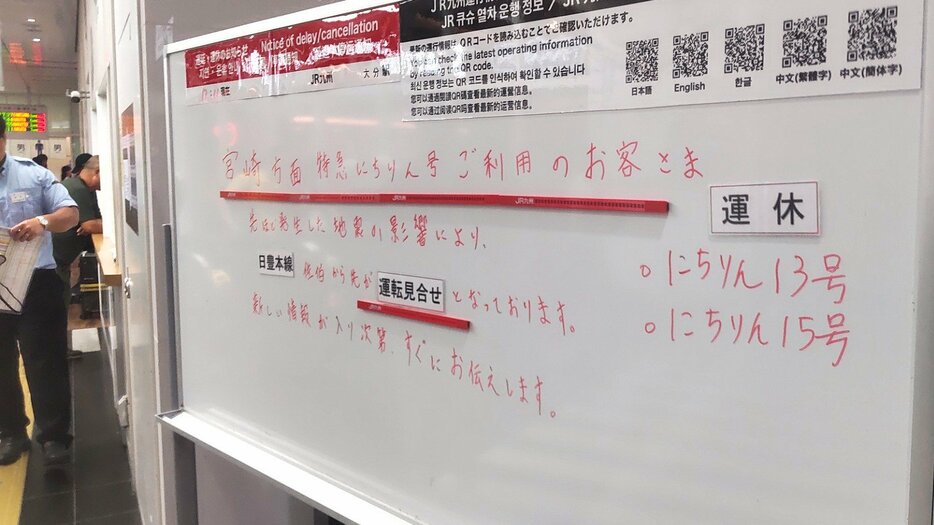 Notice of delay/cancellation
JR九州
大分駅
最新の運行情報は QRコードを読み込むことでご確認いただけます。
You can check the latest operating information
by reading the QR code.
최신 운행 정보은 QR 코드를 인식하여 확인할 수 있습니다
您可以通過閱讀QR碼查看最新的運營信息。
您可以通过阅读QR码查看最新的运营信息。
日本語 English 한글 中文(繁體字) 中文(簡体字)
宮崎方面 特急にちりん号 ご利用のお客さま
先ほど発生した地震の影響により、
日豊本線 佐伯から先が 運転見合せ となっております。
新しい情報が入り次第、すぐにお伝えします。
運休
○にちりん13号
○にちりん15号
男